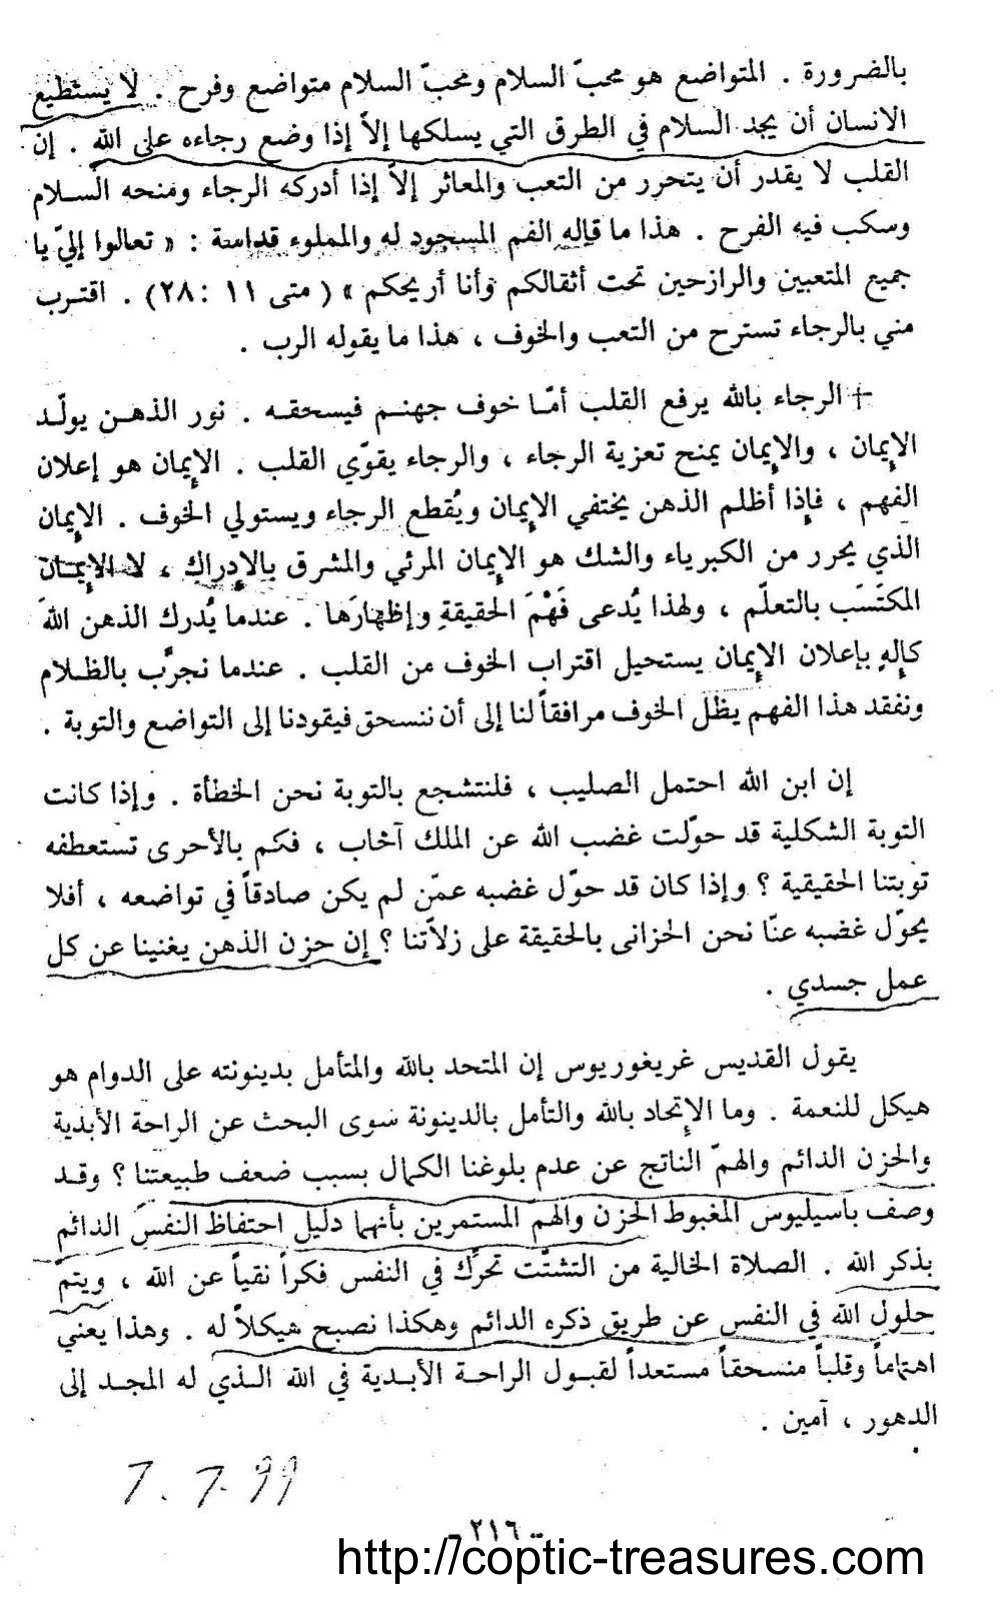 بالضرورة . المتواضع هو محبّ السلام ومحبّ السلام متواضع وفرح . لا يستطيع
الانسان أن يجد السلام في الطرق التي يسلكها إلاّ إذا وضع رجاءه على الله . إن
القلب لا يقدر أن يتحرر من التعب والمعاثر إلاّ إذا أدركه الرجاء ومنحه السلام
وسكب فيه الفرح . هذا ما قاله الفم المسجود له والمملوء قداسة : « تعالوا إليّ يا
جميع المتعبين والرازحين تحت أثقالكم وأنا أريحكم » ( متى ١١ : ٢٨) . اقترب
مني بالرجاء تسترح من التعب والخوف ، هذا ما يقوله الرب .
+ الرجاء بالله يرفع القلب أمّا خوف جهنم فيسحقه . نور الذهن يولّد
الإيمان ، والإيمان يمنح تعزية الرجاء ، والرجاء يقوّي القلب . الإيمان هو إعلان
الفهم ، فإذا أظلم الذهن يختفي الإيمان ويُقطع الرجاء ويستولي الخوف . الإيمان
الذي يحرر من الكبرياء والشك هو الإيمان المرئي والمشرق بالإدراك ، لا الإيمان
المكتَسَب بالتعلّم ، ولهذا يُدعى فَهْمَ الحقيقةِ وإظهارَها . عندما يُدرك الذهن اللهَ
كإلهٍ بإعلان الإيمان يستحيل اقتراب الخوف من القلب . عندما نجرَّب بالظلام
ونفقد هذا الفهم يظل الخوف مرافقاً لنا إلى أن ننسحق فيقودنا إلى التواضع والتوبة .
إن ابن الله احتمل الصليب ، فلنتشجع بالتوبة نحن الخطأة . وإذا كانت
التوبة الشكلية قد حوّلت غضب الله عن الملك آخاب ، فكم بالأحرى تستعطفه
توبتنا الحقيقية ؟ وإذا كان قد حوّل غضبه عمّن لم يكن صادقاً في تواضعه ، أفلا
يحوّل غضبه عنّا نحن الحزانى بالحقيقة على زلاّتنا ؟ إن حزن الذهن يغنينا عن كل
عمل جسدي .
يقول القديس غريغوريوس إن المتحد بالله والمتأمل بدينونته على الدوام هو
هيكل للنعمة . وما الإتحاد بالله والتأمل بالدينونة سوى البحث عن الراحة الأبدية
والحزن الدائم والهمّ الناتج عن عدم بلوغنا الكمال بسبب ضعف طبيعتنا ؟ وقد
وصف باسيليوس المغبوط الحزن والهمّ المستمرين بأنهما دليل احتفاظ النفس الدائم
بذكر الله . الصلاة الخالية من التشتّت تحرّك في النفس فكراً نقياً عن الله ، ويتمّ
حلول الله في النفس عن طريق ذكره الدائم وهكذا نصبح هيكلاً له . وهذا يعني
اهتماماً وقلباً منسحقاً مستعداً لقبول الراحة الأبدية في الله الذي له المجد إلى
الدهور ، آمين .
7.7.99
- ٢١٦ -
http://coptic-treasures.com